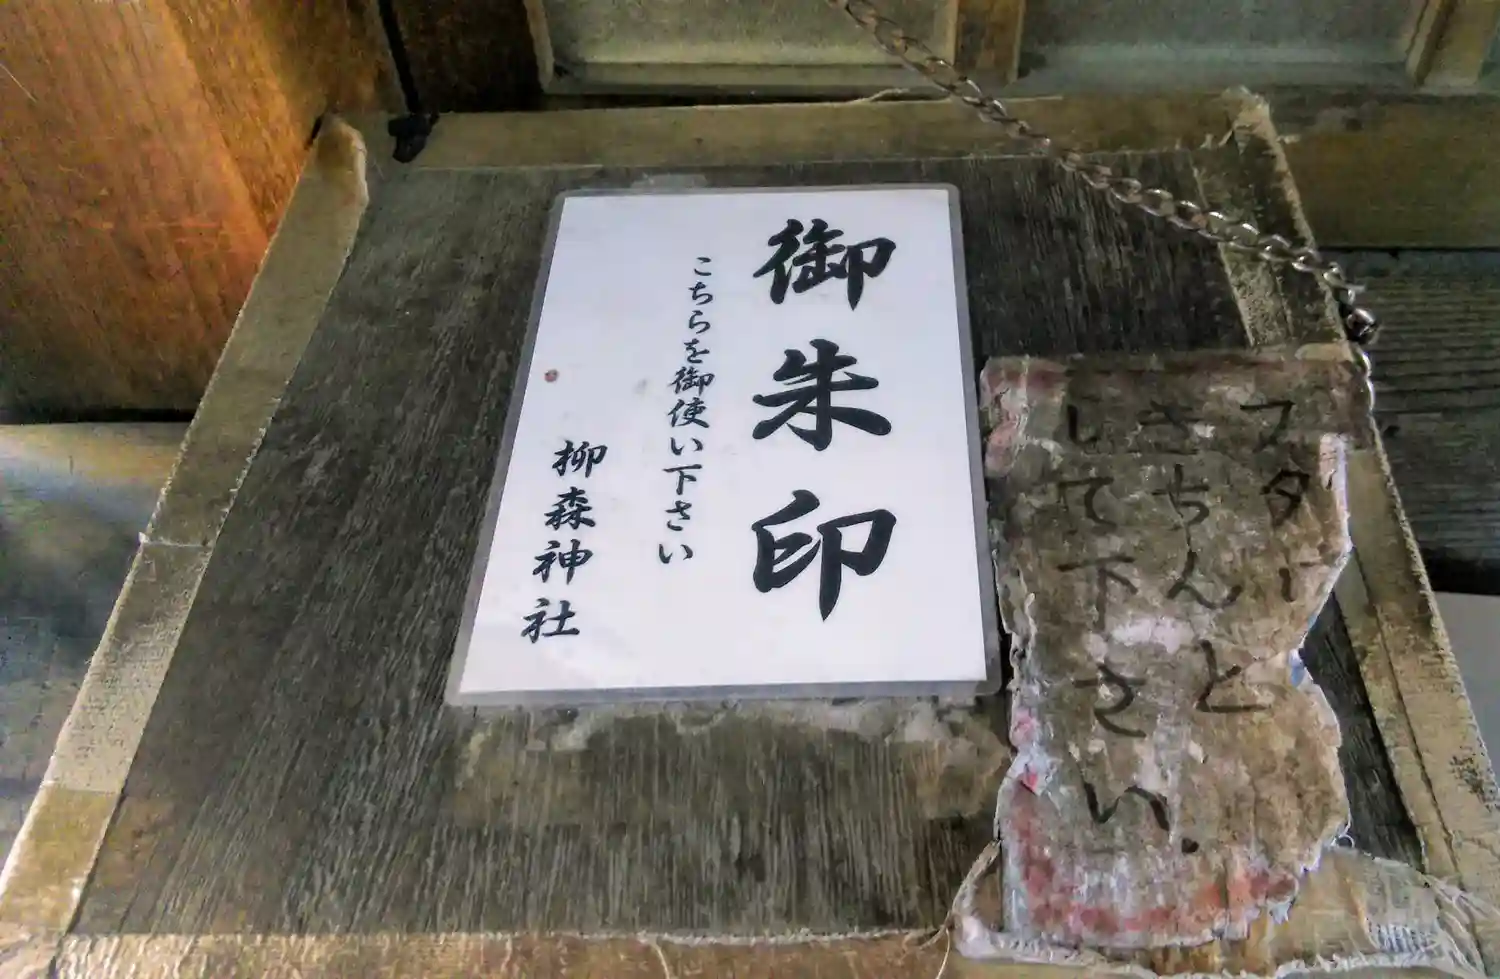 御朱印
こちらを御使い下さい
柳森神社
フター
きちんと
して下さい